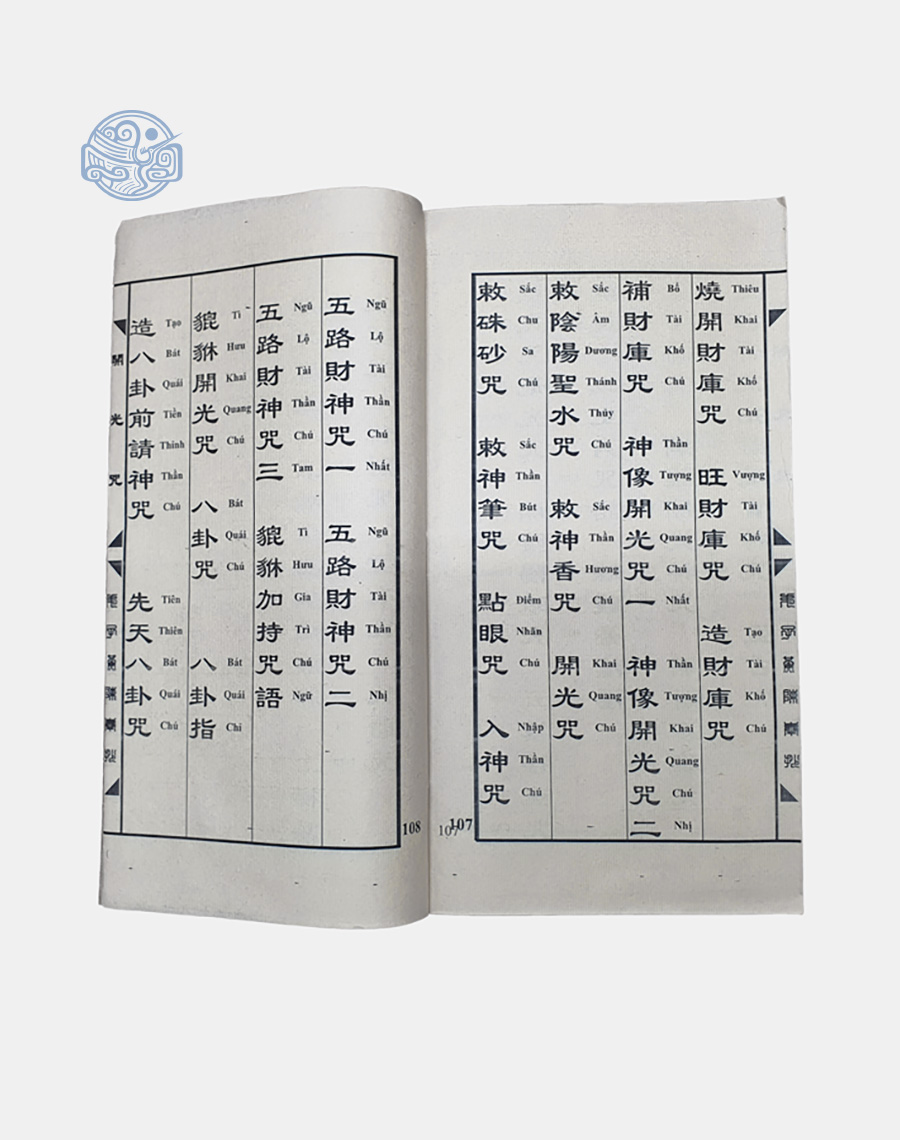 燒開財庫咒 旺財庫咒 造財庫咒
Thiêu Khai Tài Khố Chú Vượng Tài Khố Chú Tạo Tài Khố Chú
補財庫咒 神像開光咒一 神像開光咒二
Bổ Tài Khố Chú Thần Tượng Khai Quang Chú Nhất Thần Tượng Khai Quang Chú Nhị
敕陰陽聖水咒 敕神香咒 開光咒
Sắc Âm Dương Thánh Thủy Chú Sắc Thần Hương Chú Khai Quang Chú
敕硃砂咒 敕神筆咒 點眼咒 入神咒
Sắc Chu Sa Chú Sắc Thần Bút Chú Điểm Nhãn Chú Nhập Thần Chú
107
107
五路財神咒一 五路財神咒二
Ngũ Lộ Tài Thần Chú Nhất Ngũ Lộ Tài Thần Chú Nhị
五路財神咒三 貔貅加持咒語
Ngũ Lộ Tài Thần Chú Tam Tì Hưu Gia Trì Chú Ngữ
貔貅開光咒 八卦咒 八卦指
Tì Hưu Khai Quang Chú Bát Quái Chú Bát Quái Chỉ
造八卦前請神咒 先天八卦咒
Tạo Bát Quái Tiền Thỉnh Thần Chú Tiên Thiên Bát Quái Chú
開光咒
108